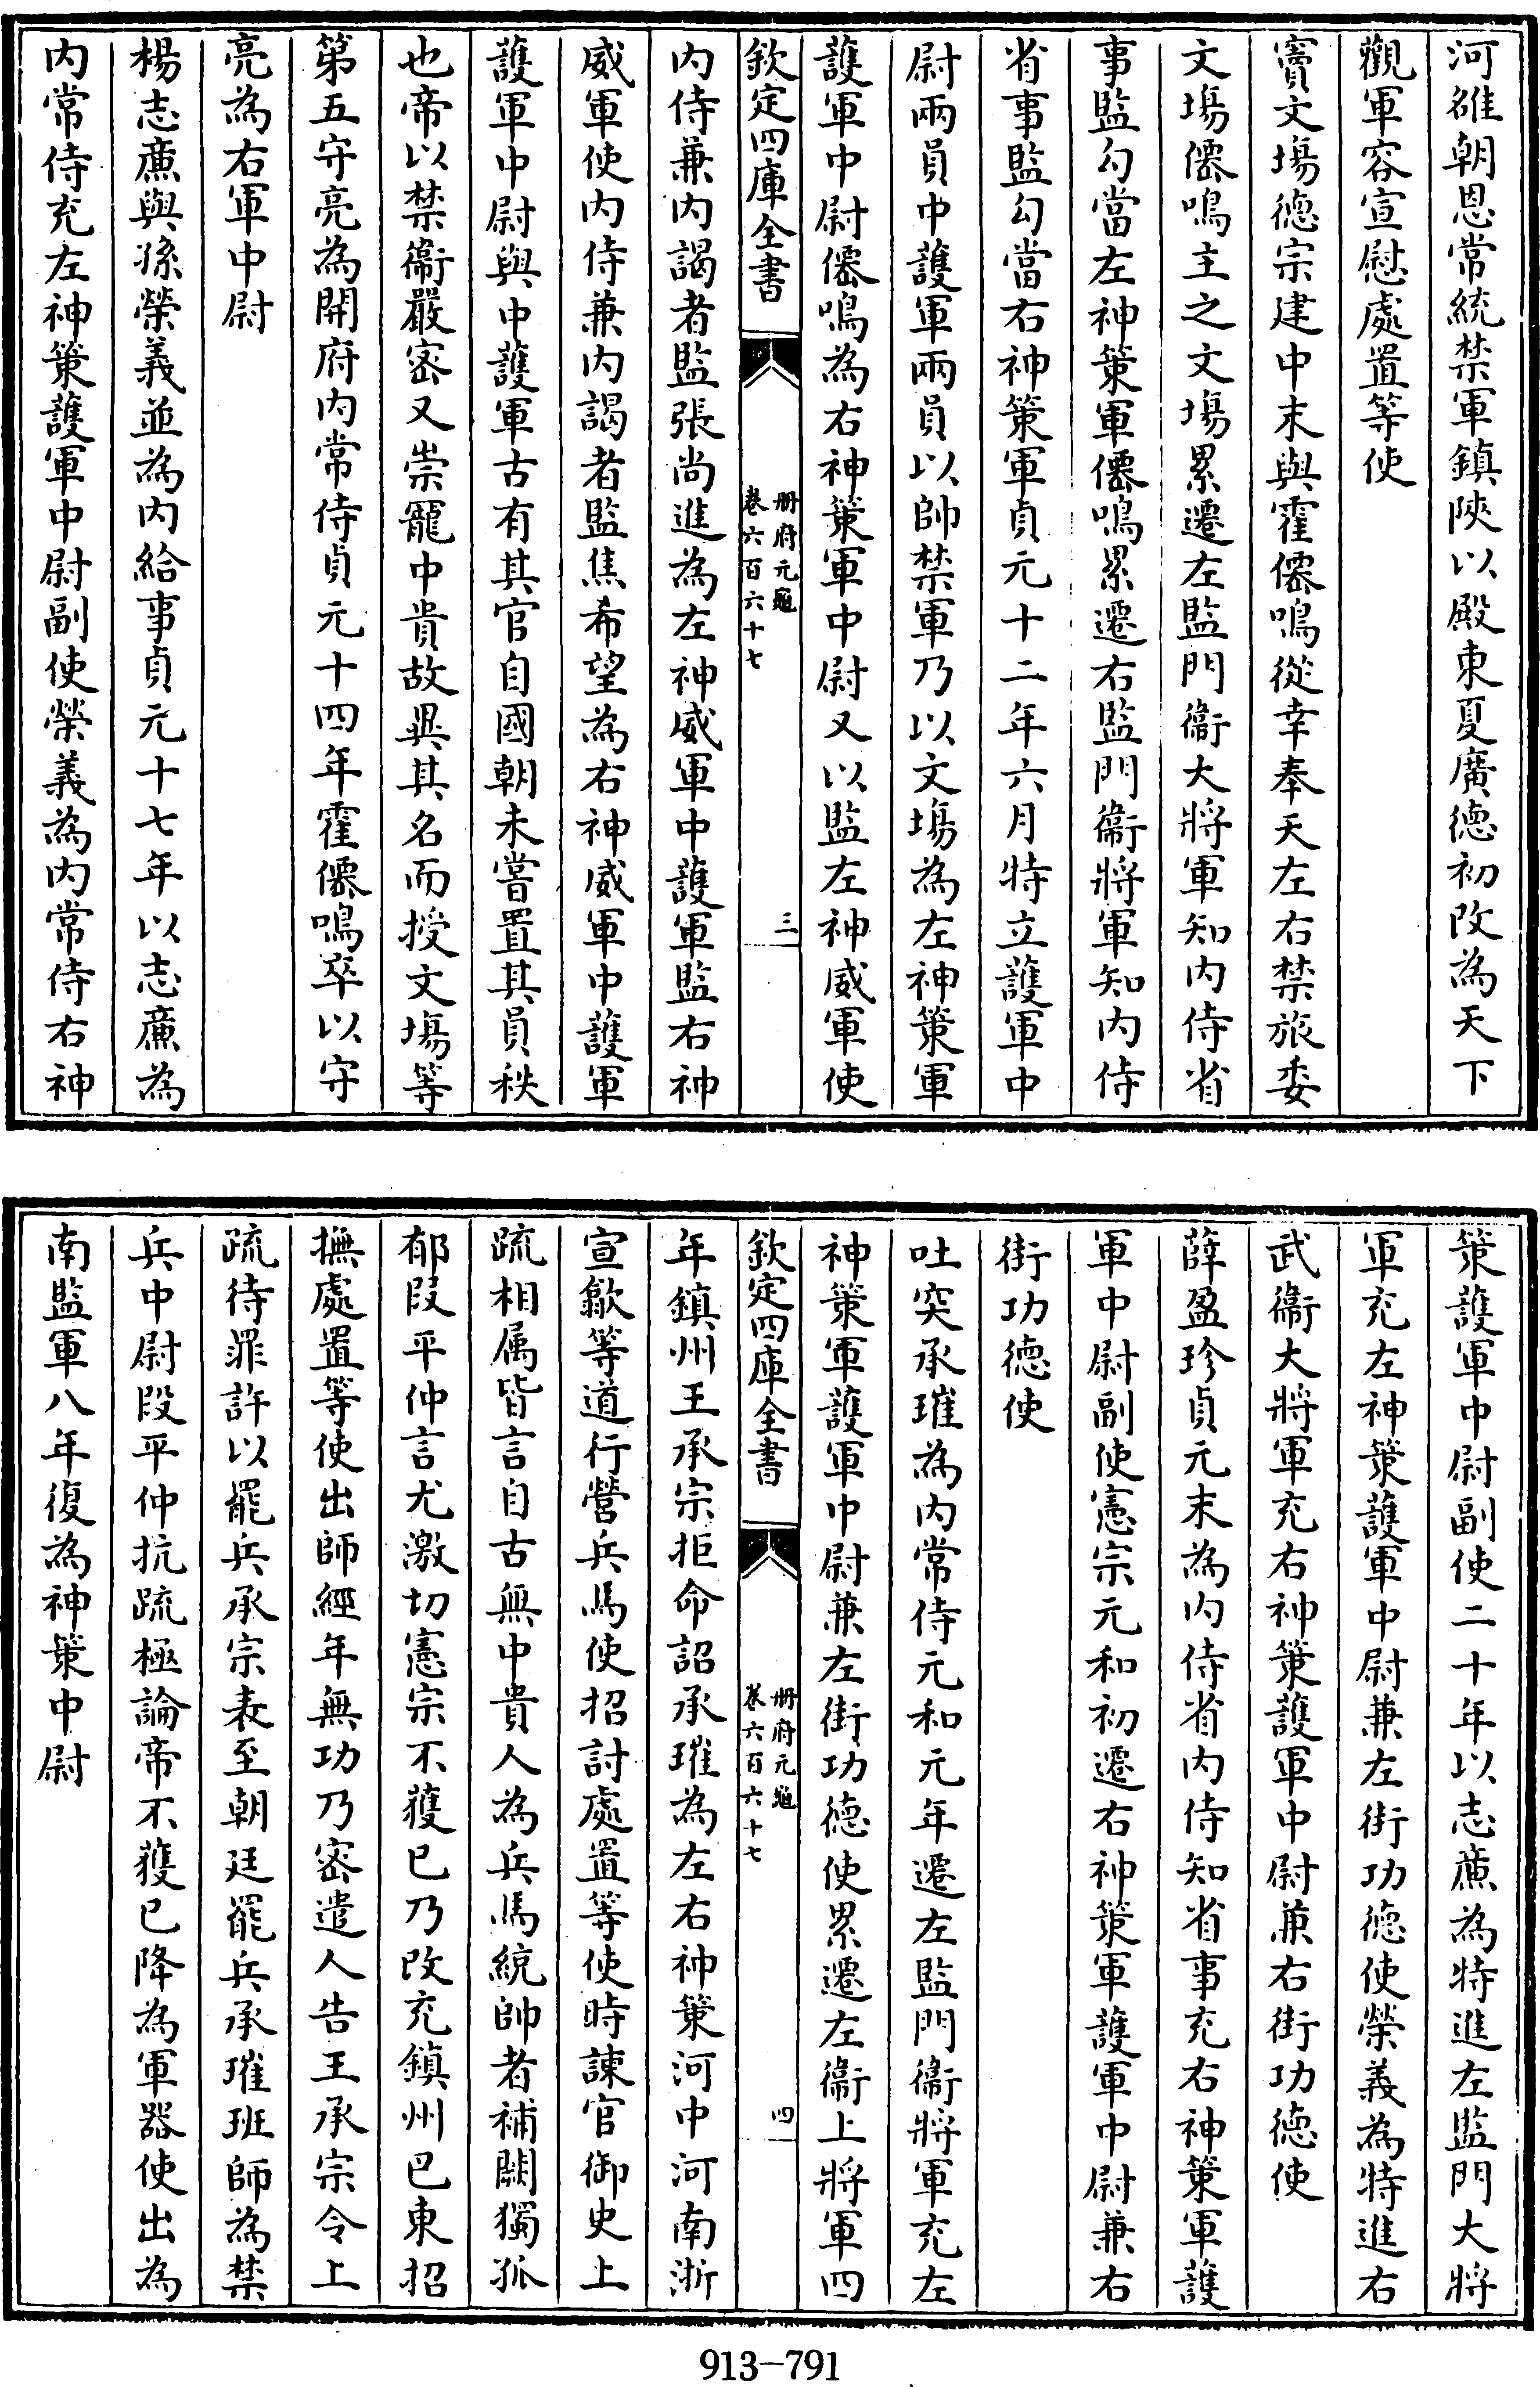 河雒朝恩常統禁軍鎮陝以殿東夏廣德初改為天下
觀軍容宣慰處置等使
竇文塲德宗建中末與霍僊鳴從幸奉天左右禁旅委
文塲僊鳴主之文塲累遷左監門衞大將軍知内侍省
事監勾當左神策軍僊鳴累遷右監門衞將軍知内侍
省事監勾當右神策軍貞元十二年六月特立護軍中
尉兩員中護軍兩員以帥禁軍乃以文塲為左神策軍
護軍中尉僊鳴為右神策軍中尉又以監左神威軍使
欽定四庫全書
冊府元龜
卷六百六十七
三
内侍兼内謁者監張尚進為左神威軍中護軍監右神
威軍使内侍兼内謁者監焦希望為右神威軍中護軍
護軍中尉與中護軍古有其官自國朝未嘗置其員秩
也帝以禁衞嚴密又崇寵中貴故異其名而授文塲等
第五守亮為開府内常侍貞元十四年霍僊鳴卒以守
亮為右軍中尉
楊志廉與孫榮義並為内給事貞元十七年以志廉為
内常侍充左神策護軍中尉副使榮義為内常侍右神
策護軍中尉副使二十年以志廉為特進左監門大將
軍充左神策護軍中尉兼左街功德使榮義為特進右
武衞大將軍充右神策護軍中尉兼右街功德使
薛盈珍貞元末為内侍省内侍知省事充右神策軍護
軍中尉副使憲宗元和初遷右神策軍護軍中尉兼右
街功德使
吐突承璀為内常侍元和元年遷左監門衞將軍充左
神策軍護軍中尉兼左街功德使累遷左衞上將軍四
欽定四庫全書
冊府元龜
卷六百六十七
四
年鎮州王承宗拒命詔承璀為左右神策河中河南浙
宣歙等道行營兵馬使招討處置等使時諫官御史上
疏相属皆言自古無中貴人為兵馬統帥者補闕獨孤
郁段平仲言尤激切憲宗不獲已乃改充鎮州巴東招
撫處置等使出師經年無功乃密遣人告王承宗令上
疏待罪許以罷兵承宗表至朝廷罷兵承璀班師為禁
兵中尉段平仲抗疏極論帝不獲已降為軍器使出為
南監軍八年復為神策中尉
913-791